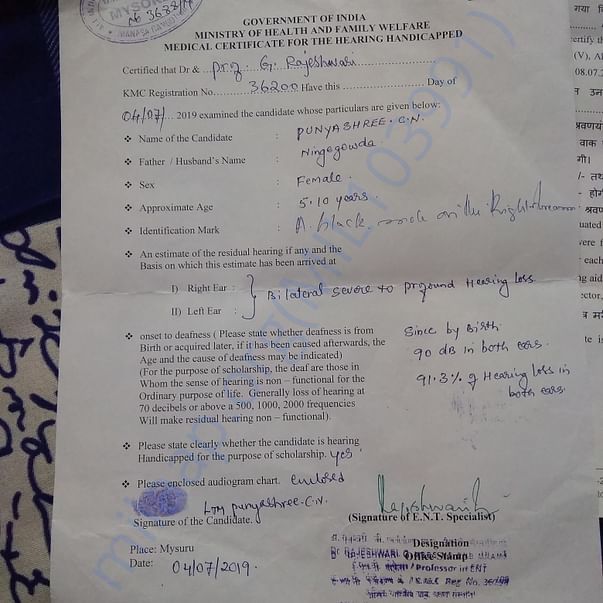 MYSO
No 3638/19
MANASA GANGO
GOVERNMENT OF INDIA
MINISTRY OF HEALTH AND FAMILY WELFARE
MEDICAL CERTIFICATE FOR THE HEARING HANDICAPPED
Certified that Dr & ... prof: G. Rajeshwari
KMC Registration No. 36200 Have this Day of
04/07/ ... 2019 examined the candidate whose particulars are given below:
❖ Name of the Candidate : PUNYASHREE.C.N.
❖ Father / Husband's Name : Ningegowda.
❖ Sex : Female.
❖ Approximate Age : 5.10 years.
❖ Identification Mark : A black mole on the Right
❖ An estimate of the residual hearing if any and the
Basis on which this estimate has been arrived at
I) Right Ear :
Bilateral severe to profound Hearing loss.
II) Left Ear :
❖ onset to deafness ( Please state whether deafness is from
Birth or acquired later, if it has been caused afterwards, the
Age and the cause of deafness may be indicated)
(For the purpose of scholarship, the deaf are those in
Whom the sense of hearing is non – functional for the
Ordinary purpose of life. Generally loss of hearing at
70 decibels or above a 500, 1000, 2000 frequencies
Will make residual hearing non – functional).
Since by Birth.
90 dB in both ears.
91.3% of Hearing loss in
both ears.
❖ Please state clearly whether the candidate is hearing
Handicapped for the purpose of scholarship. yes
❖ Please enclosed audiogram chart. enclosed
LTM punyashree.C.N.
Signature of the Candidate.
Rajeshwari
(Signature of E.N.T. Specialist)
Place: Mysuru
Date: 04/07/2019.
Designation
Office Stamp
Professor in ENT
milaap (MIL103991)